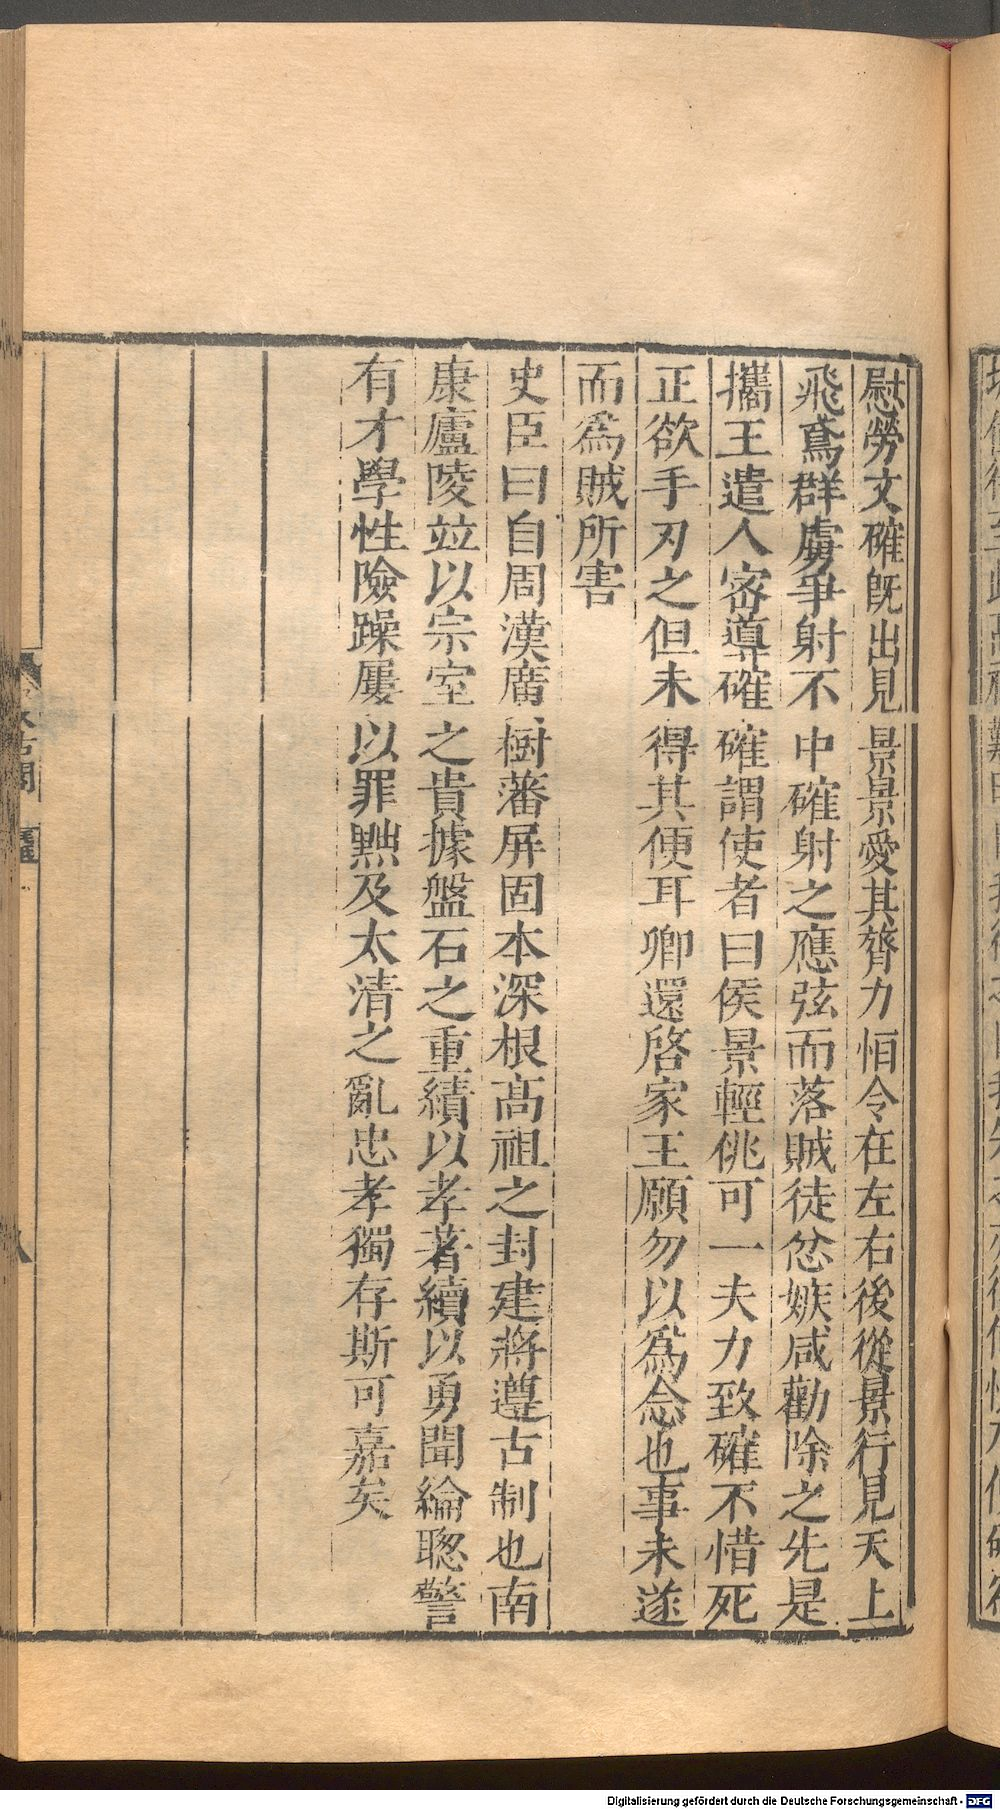 慰勞文確旣出見景景愛其膂力恒令在左右後從景行見天上
飛鳶群虜爭射不中確射之應弦而落賊徒忿嫉咸勸除之先是
攜王遣人密導確確謂使者曰侯景輕佻可一夫力致確不惜死
正欲手刃之但未得其便耳卿還啓家王願勿以爲念也事未遂
而爲賊所害
史臣曰自周漢廣樹藩屏固本深根高祖之封建將遵古制也南
康廬陵竝以宗室之貴據盤石之重績以孝著續以勇聞綸聰警
有才學性險躁屢以罪黜及太清之亂忠孝獨存斯可嘉矣
Digitalisierung gefördert durch die Deutsche Forschungsgemeinschaft - DFG